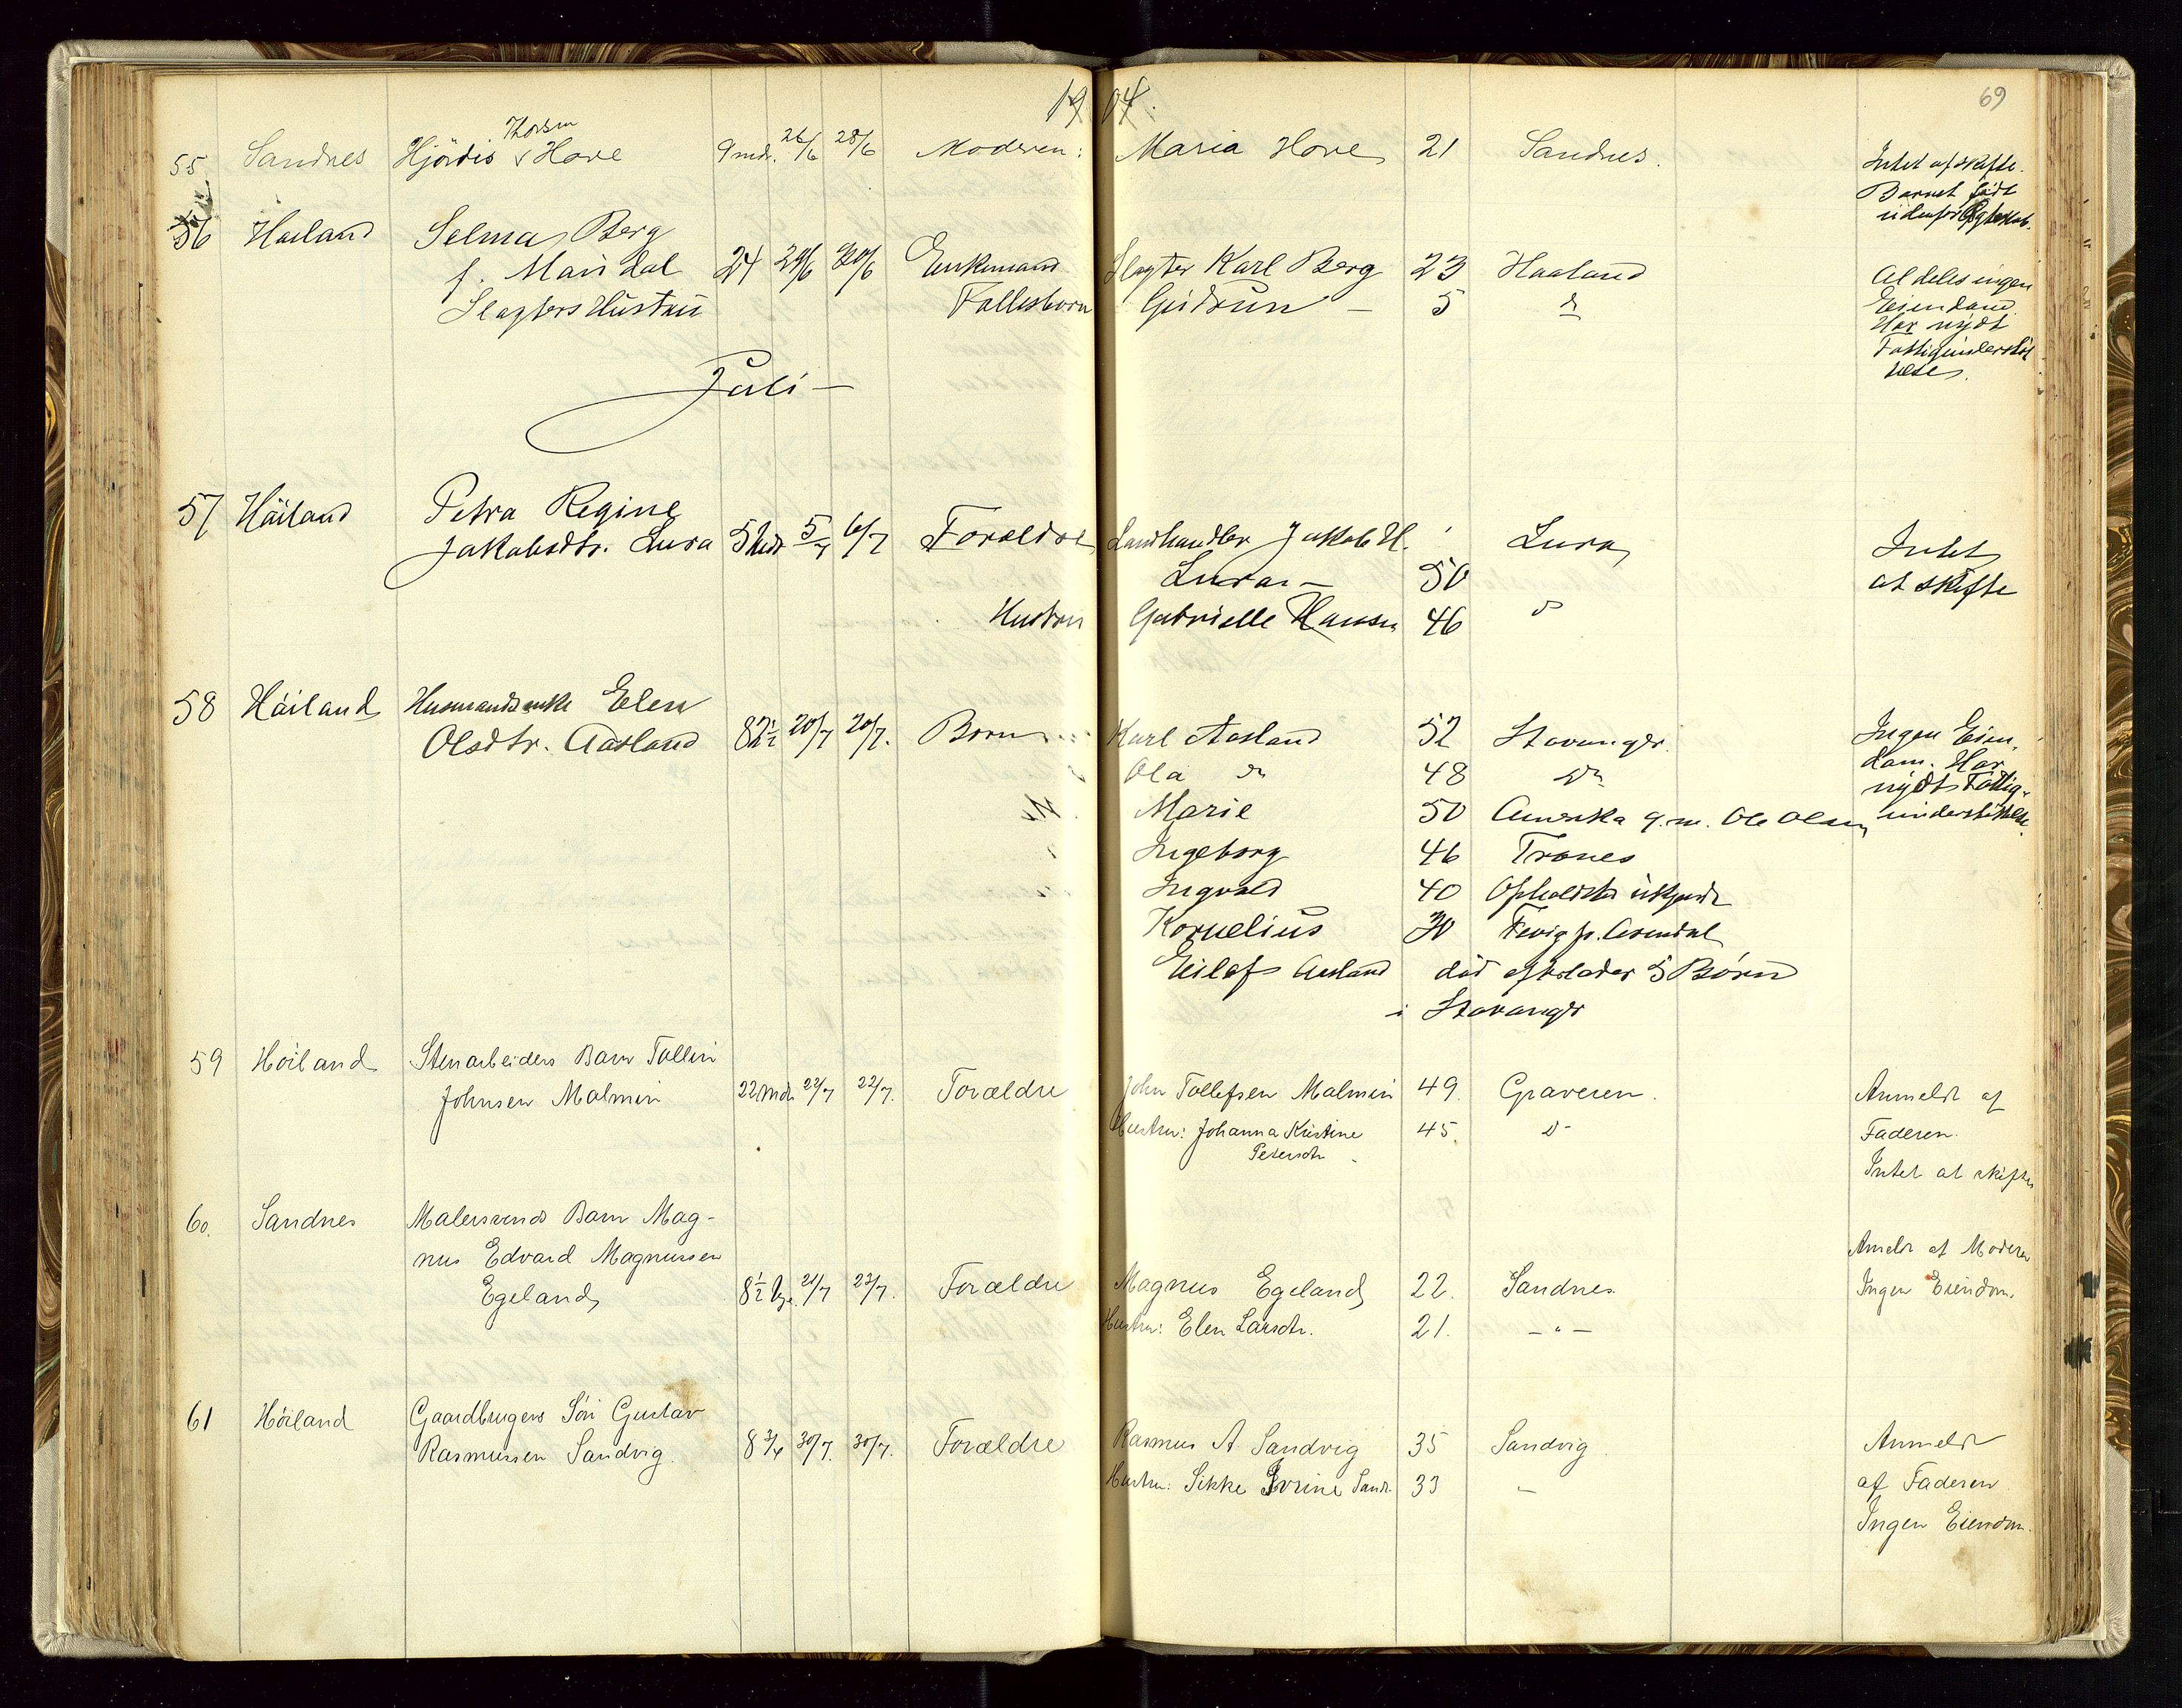 1904.
69
Thorsen
55 Sandnes Hjördis v Hove 9 mdr. 26/6 28/6 Moderen: Maria Hove 21 Sandnes. Intet at skifte.
Barnet födt
udenfor Ægteskab.
56 Høiland Selma Berg
f. Mari dal 24 29/6 30/6 Enkemand Slagter Karl Berg 23 Høiland Aldeles ingen
Slagters Hustru Fællesbarn Gudrun – 5 do Eiendom
Har nydt
Fattigunderstöt
telse.
Juli –
57 Höiland Petra Regine
Jakobsdtr. Lura 5 5/7 6/7 Forældre Landhandler Jakob H. Lura Intet
Lura – 50 at skifte
Hustru Gabrielle Hansen 46 do
58 Höiland Husmandsenke Elen
Olsdtr. Aasland 82½ 20/7 20/7. Børn Karl Aasland 52 Stavanger. Ingen Eien-
dom. Har
Ola do 48 do nydt Fattig-
Marie 50 Amerika g.m. Ole Olsen understöttelse.
Ingeborg 46 Tranes
Ingvald 40 Opholdsted ukjendt
Kornelius 30 Fevig pr. Arendal
Eilef Aasland död efterlader 5 Börn
i Stavanger
59 Höiland Stenarbeiders Barn Tollin
Johnsen Malmin 22 mdr 22/7 22/7. Forældre John Tollefsen Malmin 49. Graveren. Anmeldt af
Hustru: Johanna Kristine 45. do Faderen.
Petersdtr. Intet at skifte
60. Sandnes Malersvends Barn Mag-
nus Edvard Magnussen Anmeldt af Moderen
Egeland 8½ 21/7 23/7. Forældre Magnus Egeland 22. Sandnes. Ingen Eiendom.
Hustru: Elen Larsdtr. 21. – " –
61 Höiland Gaardbrugers Sön Gustav
Rasmussen Sandvig. 8 3/4 30/7. 30/7. Forældre Rasmus A Sandvig 35 Sandvig. Anmeldt
Hustru: Sikke Serine Sandv. 33 – af Faderen
Ingen Eiendom.